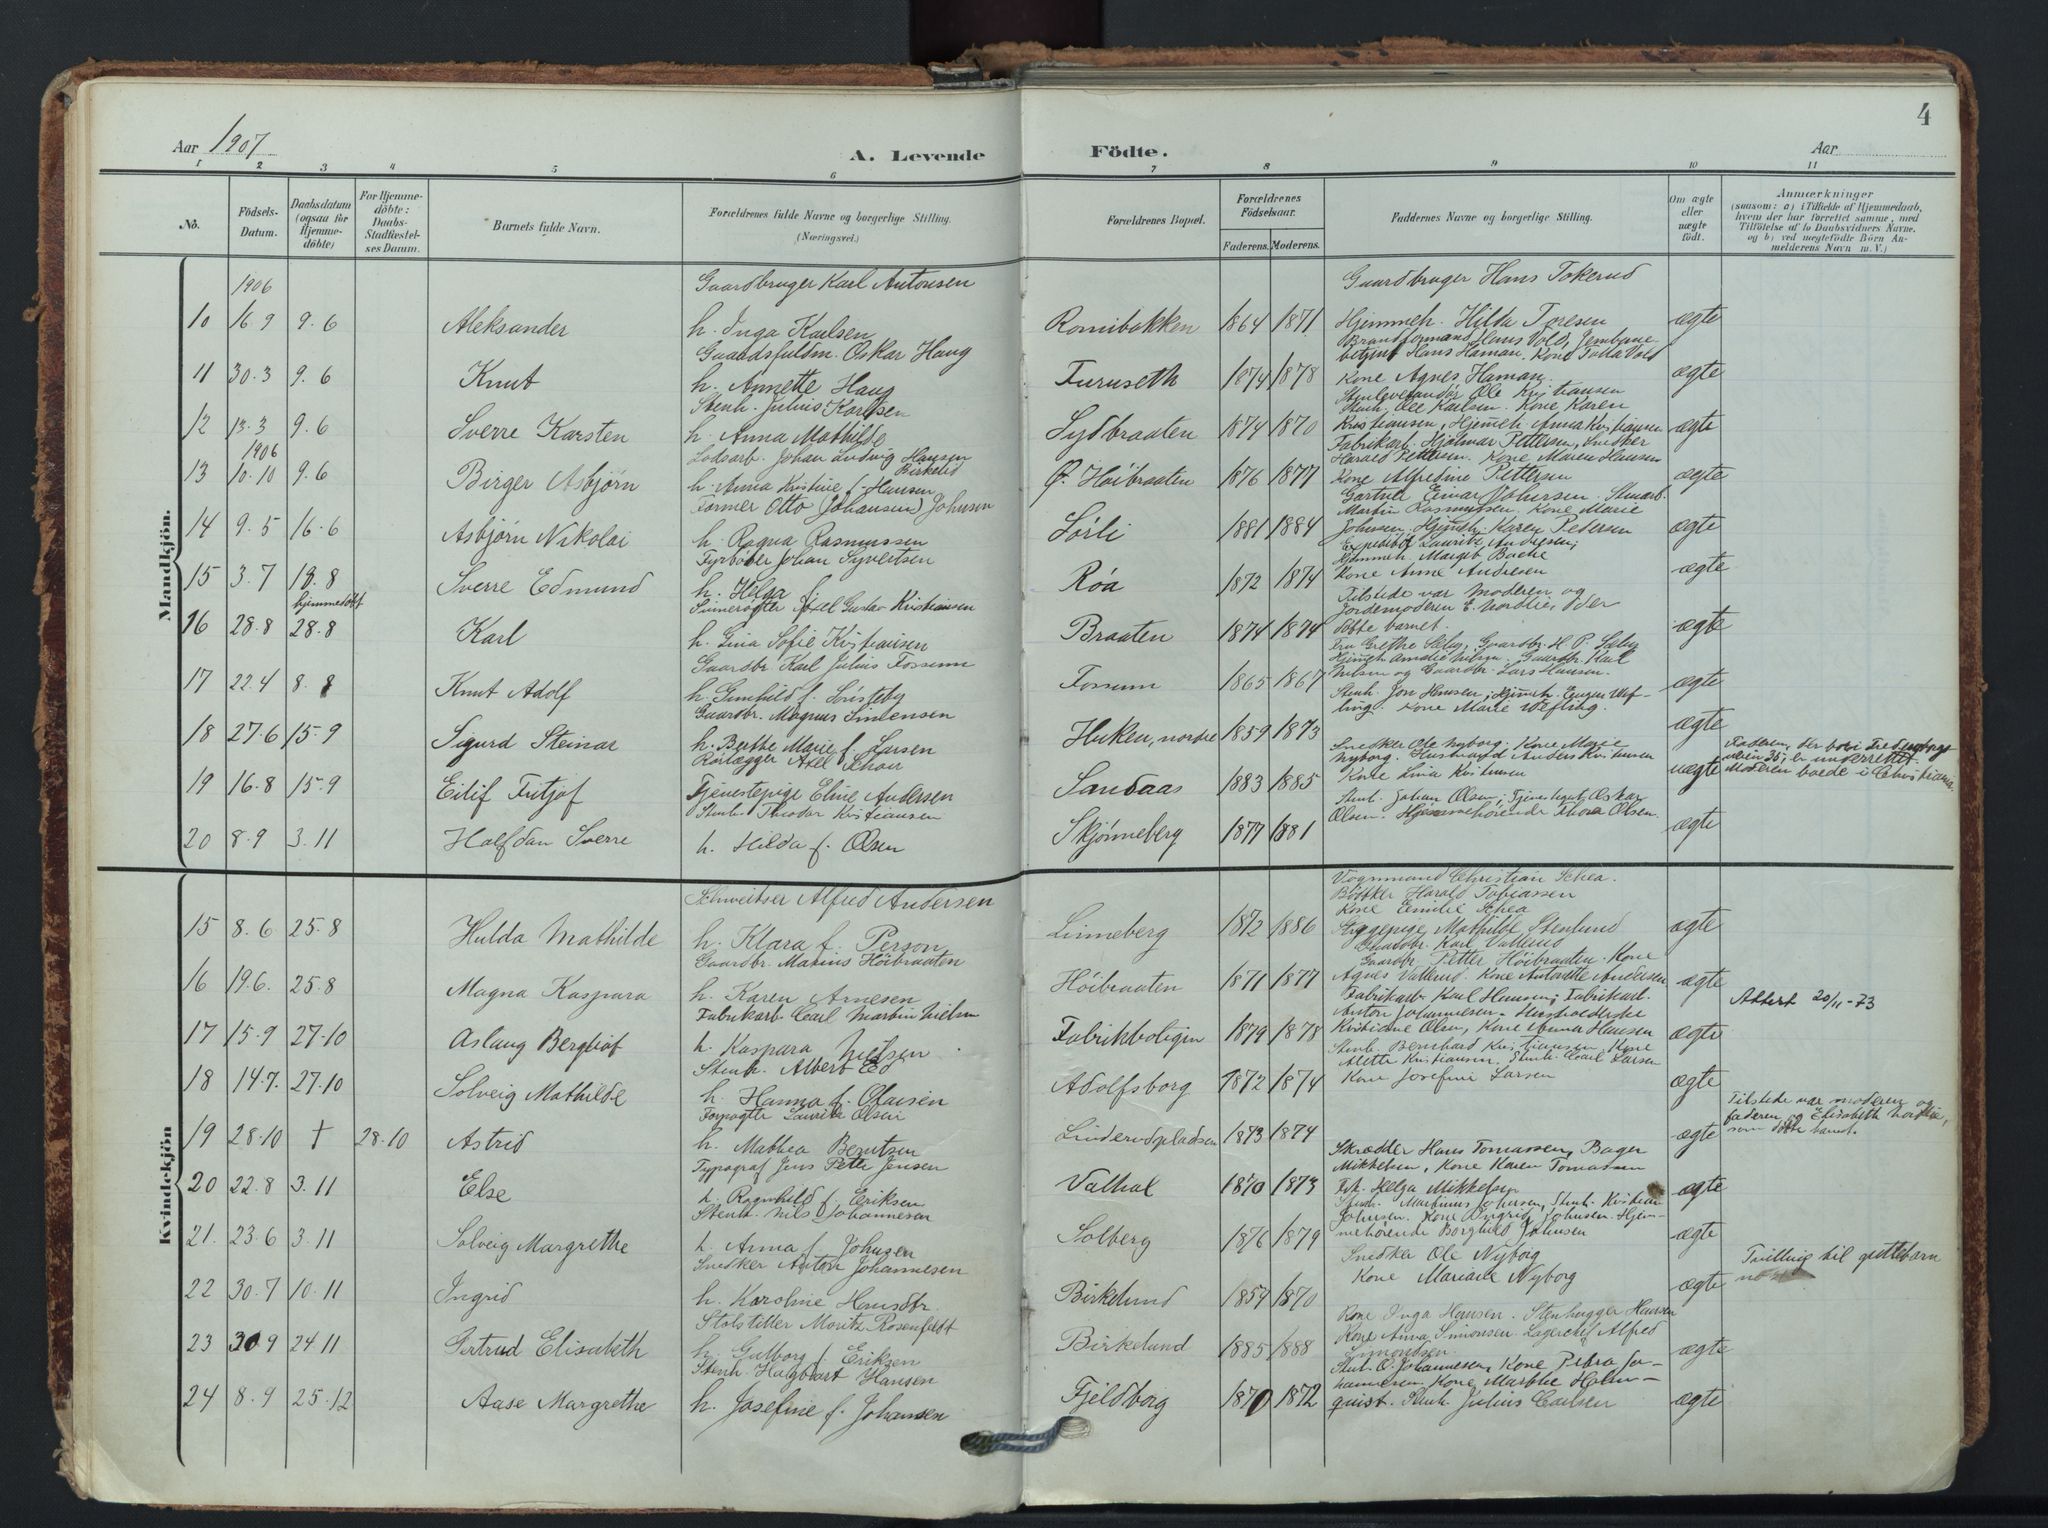 4
Aar 1907
A. Levende Födte.
Aar
1 2 3 4 5 6 7 8 9 10 11
No.
Födsels-Datum.
Daabsdatum (ogsaa for Hjemmedöbte)
For Hjemmedöbte: Daabs-Stadfæstelses Datum.
Barnets fulde Navn.
Forældrenes fulde Navne og borgerlige Stilling. (Næringsvei.)
Forældrenes Bopæl.
Forældrenes Födselsaar.
Faderens. Moderens.
Faddernes Navne og borgerlige Stilling.
Om ægte eller uægte födt.
Anmærkninger
(saasom: a) i Tilfælde af Hjemmedaab,
hvem der har forrettet samme, med
Tilföielse af to Daabsvidners Navne,
og b) ved uægtefödte Börn An-
melderens Navn m. V.)
Mandkjön.
1906 Gaardbruger Karl Antonsen Gaardbruger Hans Tokerud
10 16.9 9.6 Aleksander h. Inga Karlsen Romibakken 1864 1871 Hjemmeh. Hilda Toresen ægte
Gaardsfuldm. Oskar Haug Brandformand Hans Vold, Jernbane-
betjent Hans Haman Kone Vold
11 30.3 9.6 Knut h. Annette Haug Furuseth 1874 1878 Kone Agnes Haman ægte
Stenh. Julius Karlsen Stenleverandør Ole Kristiansen
Stenh. Ole Karlsen. Kone Karen
12 13.3 9.6 Sverre Karsten h. Anna Mathilde Sydbraaten 1874 1870 Kristiansen, Hjemmeh Anna Kristiansen ægte
1906 Lodsarb. Johan Ludvig Hansen Birkelid Fabrikarb. Hjalmar Pettersen, Snedker
Harald Pettersen. Kone Maren Hansen
13 10.10 9.6 Birger Asbjørn h. Anna Kristine f. Hansen Ø. Høibraaten 1876 1877 Kone Alfredine Pettersen ægte
Former Otto (Johansen) Johnsen Gartner Einar Johnsen. Stenarb.
Martin Rasmussen. Kone Marie
14 9.5 16.6 Asbjørn Nikolai h. Ragna Rasmussen Sørli 1881 1884 Johnsen. Hjemeh. Karen Petersen ægte
Fyrbøder Johan Syvertsen Expeditør Lauritz Andresen;
Hjemmeh. Margit Bache
15 3.7 18.8 Sverre Edmund h. Helga f. Røa 1872 1874 Kone Anne Andresen ægte
hjemmedøbt Axel Gustav Kristiansen Tilstede var moderen og
Jordemoderen E. Nordlie, der
16 28.8 28.8 Karl h. Gina Sofie Kristiansen Braaten 1874 1874 døbte barnet. ægte
Gaardbr. Karl Julius Fossum Fru Grethe Sæby, Gaardbr. H. P. Sæby
Hjemeh Amalie Nilsen. Gaardbr. Karl
17 22.4 8.8 Knut Adolf h. Gunhild f. Fossum 1865 1867 Nilsen og Gaardbr. Lars Hansen. ægte
Gaardbr. Magnus Simensen Stenh. Jon Hansen; Hjemeh. Wef-
ling. Kone Marie Wefling.
18 27.6 15.9 Sigurd Steinar h. Berthe Marie f. Larsen Huken, nordre 1859 1873 ægte
Rørlægger Axel Schou Snedker Ole Nyborg. Kone Marie
Nyborg. Husmand Anders Kristiansen Faderen, der bor i
19 16.8 15.9 Eilif Fritjof Tjenestepige Eline Andersen Sandaas 1883 1885 Kone Lina Kristiansen uægte 35, er underrettet. Moderen boede i Christiania.
Stenh. Theodor Kristiansen Stenh. Johan Olsen; Tjenestegut Oskar
20 8.9 3.11 Halfdan Sverre h. Hilda f. Olsen Skjønneberg 1877 1881 Olsen. Hjemmehørende Thora Olsen. ægte
Kvindekjön
Schweitser Alfred Andersen Vognmand Christian Schea.
Bødker Harald Tobiassen
Kone Emilie Schea
15 8.6 25.8 Hulda Mathilde h. Klara f. Person Linneberg 1872 1886 Mathilde Stenlund ægte
Gaardbr. Marius Höibraaten Gaardbr. Karl Vallerud
Gaardbr. Petter Höibraaten. Kone
16 19.6. 25.8 Magna Kaspara h. Karen Arnesen Höibraaten 1871 1877 Agnes Vallerud. Kone Antonette Andersen ægte Attest 20/11-73
Fabrikarb Carl Martin Nielsen Fabrikarb Karl Hansen; Fabrikarb.
Anton Johannesen. Husholderske
17 15.9 27.10 Aslaug Bergliot h. Kaspara Nielsen Fabrikboligen 1879 1878 Kristiane Olsen, Kone Anna Hansen ægte
Stenh. Albert Ed Stenh. Bernhard Kristiansen, Kone
Alette Kristiansen. Stenh. Carl Larsen
18 14.7. 27.10 Solveig Mathilde h. Hanna f. Olausen Adolfsborg 1872 1874 Kone Josefine Larsen ægte
Forpagter Laurits Olsen Tilstede var moderen og
faderen og Elisabeth Nordlie,
19 28.10 † 28.10 Astrid h. Mathea Berntsen Linderudpladsen 1873 1874 ægte som døbte barnet.
Typograf Jens Peter Jensen Skrædder Hans Tomassen, Bager
Mikkelsen, Kone Karen Tomassen
20 22.8 3.11 Else h. Ragnhild f. Eriksen Valhal 1870 1873 Frk. Helga Mikkelsen ægte
Stenh. Nils Johannesen Stenh. Martinius Johnsen, Stenh. Kristian
Johnsen. Kone Ingrid Johnsen. Hjem-
21. 23.6 3.11 Solveig Margrethe h. Anna f. Johnsen Solberg 1876 1879 mehørende Borghild Johnsen ægte
Snedker Anton Johannesen Snedker Ole Nyborg Tvilling til guttebarn
22 30.7 10.11 Ingrid h. Karoline Hansdtr. Birkelund 1854 1870 Kone Mariane Nyborg ægte
Moritz Rosenfeldt Kone Inga Hansen. Stenhugger Hansen
Kone Anna Simonsen. Lagerchef Alfred
23 30.9 24.11 Gertrud Elisabeth h. Gulborg f. Eriksen Birkelund 1885 1888 Simonsen. ægte
Stenh. Hagbart Hansen Stenh. O. Johannesen, Kone Petra Jo-
hannesen. Kone Marthe Holm-
24 8.9 25.12 Aase Margrethe h. Josefine f. Johansen Fjeldborg 1870 1872 quist. Stenh. Julius Carlsen ægte